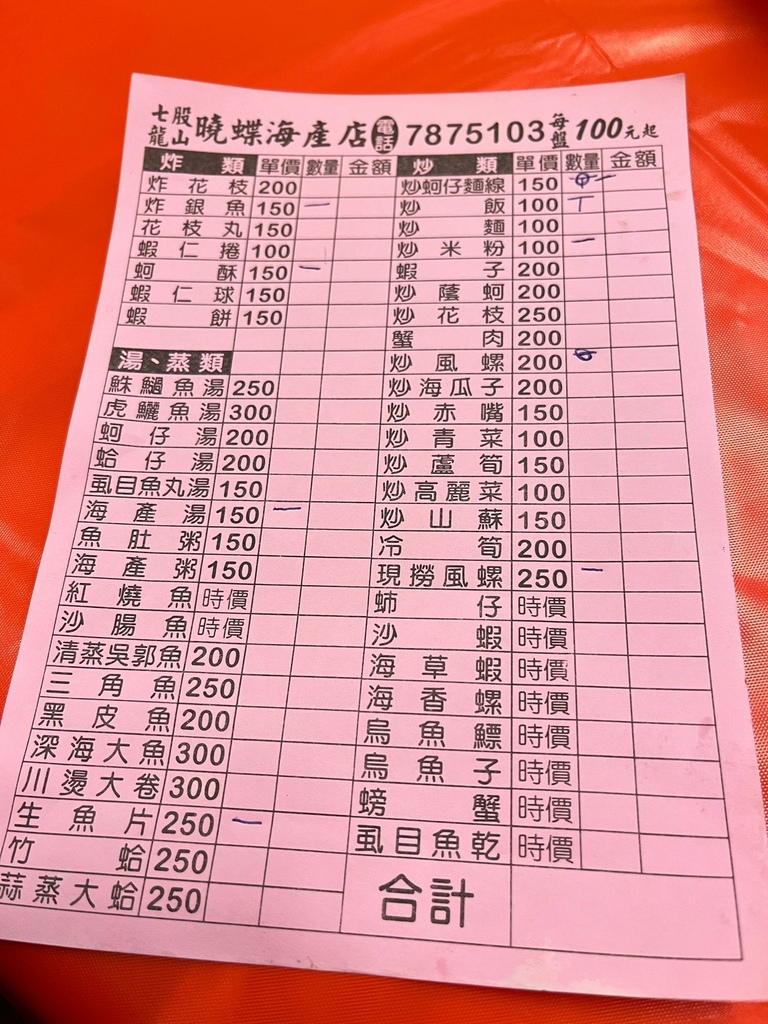 七股龍山 曉蝶海產店 電話 7875103 每盤100元起
炸類 單價 數量 金額
炸花枝 200
炸銀魚 150 一
花枝丸 150
蝦仁捲 100
蚵酥 150 一
蝦仁球 150
蝦餅 150
湯、蒸類
魚湯 250
虎鱺魚湯 300
蚵仔湯 200
蛤仔湯 200
虱目魚丸湯 150
海產湯 150 一
魚肚粥 150
海產粥 150
紅燒魚 時價
沙腸魚 時價
清蒸吳郭魚 200
三角魚 250
黑皮魚 200
深海大魚 300
川燙大卷 300
生魚片 250 一
竹蛤 250
蒜蒸大蛤 250
炒類 單價 數量 金額
炒蚵仔麵線 150
炒飯 100 丅
炒麵 100
炒米粉 100 一
蝦子 200
炒蔭蚵 200
炒花枝 250
蟹肉 200
炒風螺 200
炒海瓜子 200
炒赤嘴 150
炒青菜 100
炒蘆筍 150
炒高麗菜 100
炒山蘇 150
冷筍 200
現撈風螺 250 一
蚵仔 時價
沙蝦 時價
海草蝦 時價
海香螺 時價
烏魚鰾 時價
烏魚子 時價
螃蟹 時價
虱目魚乾 時價
合計